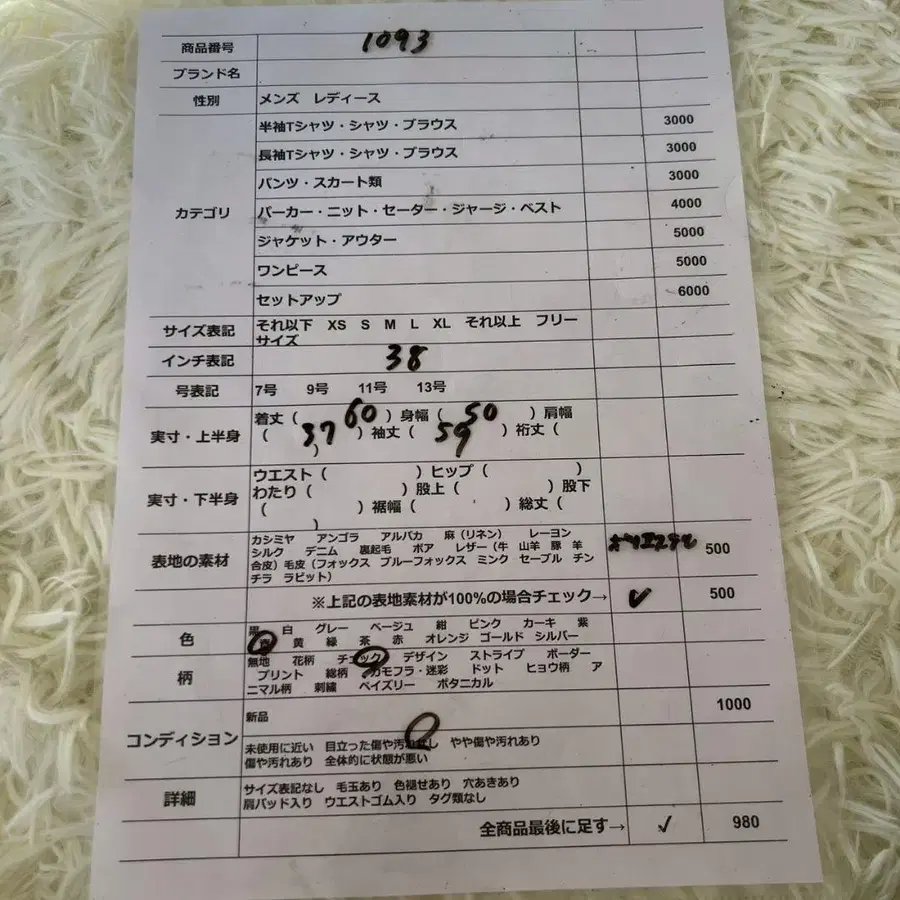 商品番号 1093
ブランド名
性別 メンズ レディース
半袖Tシャツ・シャツ・ブラウス 3000
長袖Tシャツ・シャツ・ブラウス 3000
パンツ・スカート類 3000
カテゴリ パーカー・ニット・セーター・ジャージ・ベスト 4000
ジャケット・アウター 5000
ワンピース 5000
セットアップ 6000
サイズ表記 それ以下 XS S M L XL それ以上 フリー
サイズ
インチ表記 38
号表記 7号 9号 11号 13号
着丈( 60 )身幅( 50 )肩幅
実寸・上半身 ( 37 )袖丈( 59 )裄丈(
)
ウエスト( )ヒップ( )
実寸・下半身 わたり( )股上( )股下
( )裾幅( )総丈(
)
カシミヤ アンゴラ アルパカ 麻(リネン) レーヨン
表地の素材 シルク デニム 裏起毛 ボア レザー(牛 山羊 豚 羊 ポリエステル 500
合皮)毛皮(フォックス ブルーフォックス ミンク セーブル チン
チラ ラビット)
※上記の表地素材が100%の場合チェック→ ✓ 500
黒 白 グレー ベージュ 紺 ピンク カーキ 紫
色 青 黄 緑 茶 赤 オレンジ ゴールド シルバー
無地 花柄 チェック デザイン ストライプ ボーダー
柄 プリント 総柄 カモフラ・迷彩 ドット ヒョウ柄 ア
ニマル柄 刺繍 ペイズリー ボタニカル
新品 1000
コンディション 未使用に近い 目立った傷や汚れなし やや傷や汚れあり
傷や汚れあり 全体的に状態が悪い
詳細 サイズ表記なし 毛玉あり 色褪せあり 穴あきあり
肩パッド入り ウエストゴム入り タグ類なし
全商品最後に足す→ ✓ 980